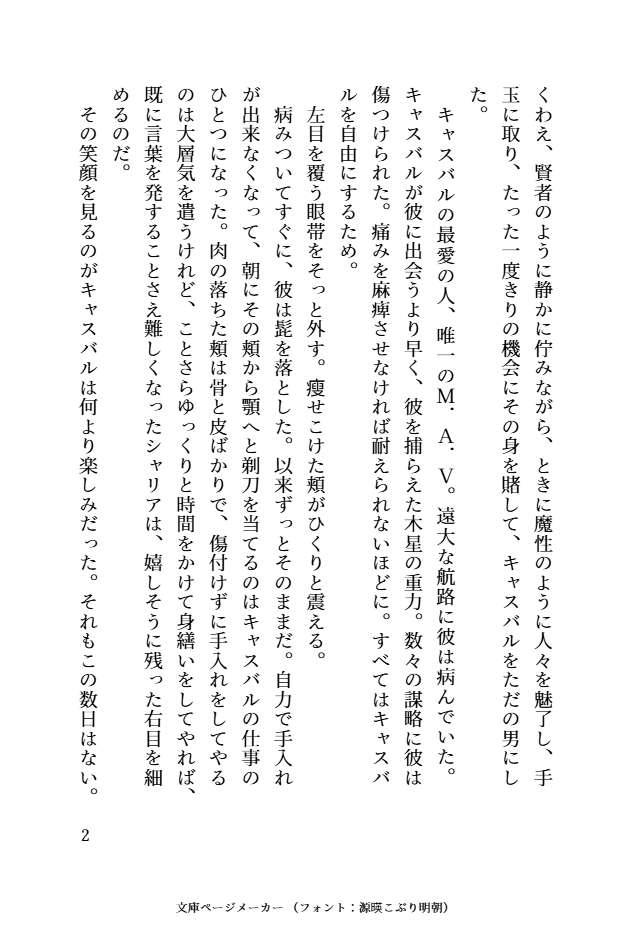 くわえ、賢者のように静かに佇みながら、ときに魔性のように人々を魅了し、手
玉に取り、たった一度きりの機会にその身を賭して、キャスバルをただの男にし
た。
　キャスバルの最愛の人、唯一のＭ．Ａ．Ｖ。遠大な航路に彼は病んでいた。
キャスバルが彼に出会うより早く、彼を捕らえた木星の重力。数々の謀略に彼は
傷つけられた。痛みを麻痺させなければ耐えられないほどに。すべてはキャスバ
ルを自由にするため。
　左目を覆う眼帯をそっと外す。痩せこけた頬がひくりと震える。
　病みついてすぐに、彼は髭を落とした。以来ずっとそのままだ。自力で手入れ
が出来なくなって、朝にその頬から顎へと剃刀を当てるのはキャスバルの仕事の
ひとつになった。肉の落ちた頬は骨と皮ばかりで、傷付けずに手入れをしてやる
のは大層気を遣うけれど、ことさらゆっくりと時間をかけて身繕いをしてやれば、
既に言葉を発することさえ難しくなったシャリアは、嬉しそうに残った右目を細
めるのだ。
　その笑顔を見るのがキャスバルは何より楽しみだった。それもこの数日はない。
2
文庫ページメーカー（フォント：源暎こぶり明朝）